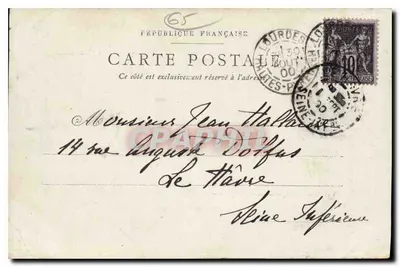 65
RÉPUBLIQUE FRANÇAISE
CARTE POSTALE
Ce côté est exclusivement réservé à l'adresse
LOURDES
AOUT
00
HTES-PYRENEES
10
SEINE
Monsieur Jean
14 rue Auguste Dolfus
Le Hâvre
Seine Inférieure